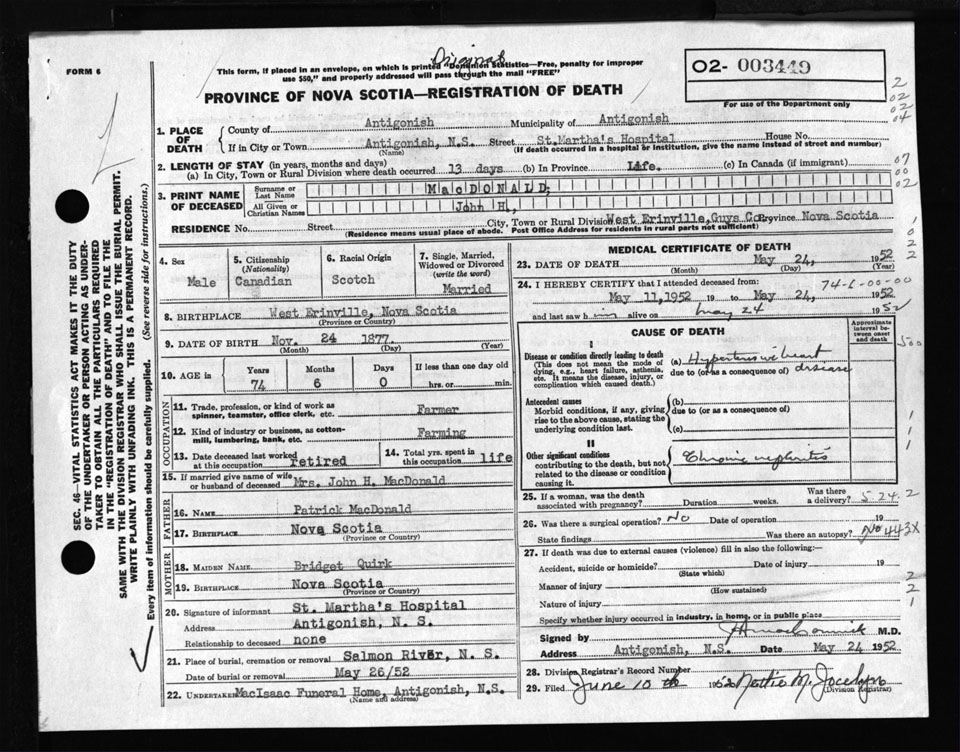 FORM 6
Original
This form, if placed in an envelope, on which is printed "Dominion Statistics—Free, penalty for improper
use $50," and properly addressed will pass through the mail "FREE"
PROVINCE OF NOVA SCOTIA—REGISTRATION OF DEATH
02- 003449
For use of the Department only
2
02
02
04
1. PLACE OF DEATH
County of Antigonish Municipality of Antigonish
If in City or Town Antigonish, N.S. Street St.Martha's Hospital House No.
(Name) (If death occurred in a hospital or institution, give the name instead of street and number)
2. LENGTH OF STAY (in years, months and days)
(a) In City, Town or Rural Division where death occurred 13 days (b) In Province Life. (c) In Canada (if immigrant)
07
00
02
3. PRINT NAME OF DECEASED
Surname or Last Name MacDONALD,
All Given or Christian Names John H.,
RESIDENCE No. Street City, Town or Rural Division West Erinville, Guys Co. Province Nova Scotia
(Residence means usual place of abode. Post Office Address for residents in rural parts not sufficient)
4. Sex Male
5. Citizenship (Nationality) Canadian
6. Racial Origin Scotch
7. Single, Married, Widowed or Divorced (write the word) Married
8. BIRTHPLACE West Erinville, Nova Scotia
(Province or Country)
9. DATE OF BIRTH Nov. 24 1877.
(Month) (Day) (Year)
10. AGE in Years 74 Months 6 Days 0 If less than one day old
hrs. or min.
OCCUPATION
11. Trade, profession, or kind of work as
spinner, teamster, office clerk, etc. Farmer
12. Kind of industry or business, as cotton-
mill, lumbering, bank, etc. Farming
13. Date deceased last worked
at this occupation retired
14. Total yrs. spent in
this occupation life
15. If married give name of wife
or husband of deceased Mrs. John H. MacDonald
FATHER
16. NAME Patrick MacDonald
17. BIRTHPLACE Nova Scotia
(Province or Country)
MOTHER
18. MAIDEN NAME Bridget Quirk
19. BIRTHPLACE Nova Scotia
(Province or Country)
20. Signature of informant St. Martha's Hospital
Address Antigonish, N. S.
Relationship to deceased none
21. Place of burial, cremation or removal Salmon River, N. S.
Date of burial or removal May 26/52
22. UNDERTAKER MacIsaac Funeral Home, Antigonish, N.S.
(Name and address)
MEDICAL CERTIFICATE OF DEATH
23. DATE OF DEATH May 24, 1952
(Month) (Day) (Year)
24. I HEREBY CERTIFY that I attended deceased from: 74-6-00-00
May 11,1952 19 to May 24, 1952
and last saw him alive on May 24 1952
CAUSE OF DEATH
Approximate interval between onset and death
Disease or condition directly leading to death
(This does not mean the mode of
dying, e.g., heart failure, asthenia,
etc. It means the disease, injury, or
complication which caused death.)
(a) Hypertensive heart disease
due to (or as a consequence of)
Antecedent causes
Morbid conditions, if any, giving
rise to the above cause, stating the
underlying condition last.
(b)
due to (or as a consequence of)
(c)
II
Other significant conditions
contributing to the death, but not
related to the disease or condition
causing it.
Chronic nephritis
25. If a woman, was the death
associated with pregnancy? Duration weeks. Was there a delivery? 5.24.2
26. Was there a surgical operation? No Date of operation 19
State findings Was there an autopsy? No 443X
27. If death was due to external causes (violence) fill in also the following:—
Accident, suicide or homicide? Date of injury 19
(State which)
Manner of injury
(How sustained)
Nature of injury
Specify whether injury occurred in industry, in home, or in public place
Signed by M.D.
Address Antigonish, N.S. Date May 24 1952
28. Division Registrar's Record Number
29. Filed June 10th 1952 Nettie M. Jocelyn
(Division Registrar)
SEC. 46—VITAL STATISTICS ACT MAKES IT THE DUTY
OF THE UNDERTAKER OR PERSON ACTING AS UNDER-
TAKER TO OBTAIN ALL THE PARTICULARS REQUIRED
IN THE "REGISTRATION OF DEATH" AND TO FILE THE
SAME WITH THE DIVISION REGISTRAR WHO SHALL ISSUE THE BURIAL PERMIT.
WRITE PLAINLY WITH UNFADING INK. THIS IS A PERMANENT RECORD.
Every item of information should be carefully supplied. (See reverse side for instructions.)